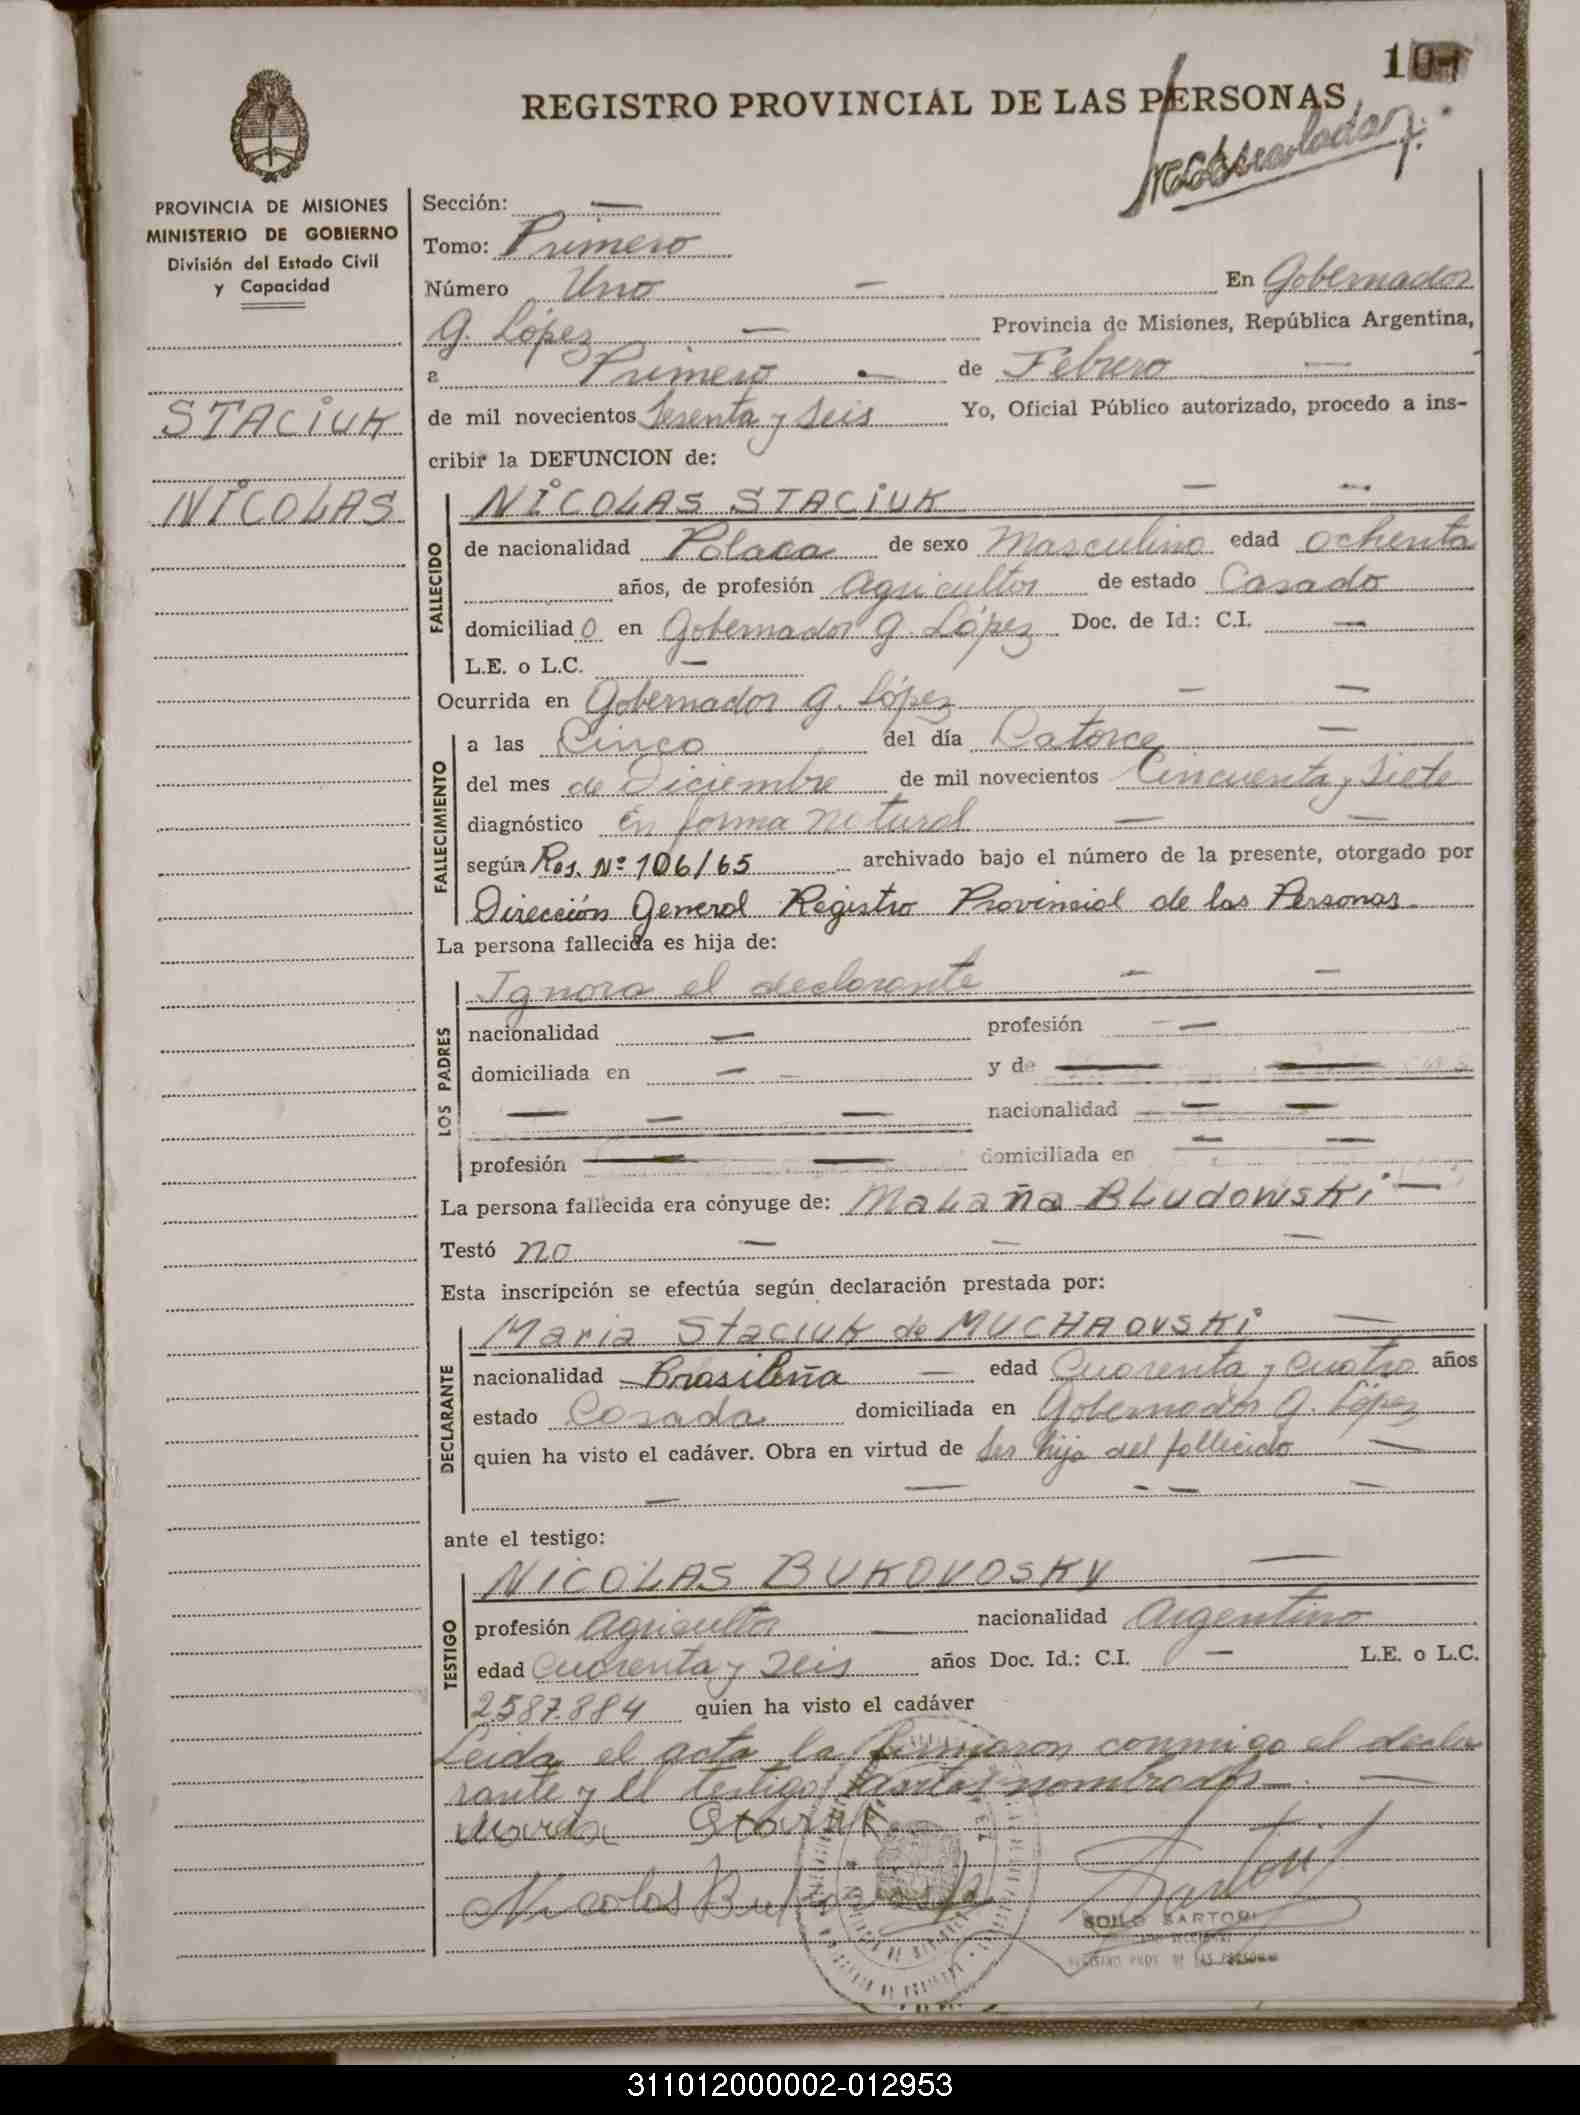 REGISTRO PROVINCIAL DE LAS PERSONAS
PROVINCIA DE MISIONES
MINISTERIO DE GOBIERNO
División del Estado Civil
y Capacidad
STACIUK
NICOLAS
Sección: —
Tomo: Primero
Número Uno — En Gobernador
G. López — Provincia de Misiones, República Argentina,
a Primero — de Febrero —
de mil novecientos Sesenta y Seis Yo, Oficial Público autorizado, procedo a ins-
cribir la DEFUNCION de:
FALLECIDO
NICOLAS STACIUK — —
de nacionalidad Polaca de sexo Masculino edad ochenta
años, de profesión Agricultor de estado Casado
domiciliado en Gobernador G. López Doc. de Id.: C.I. —
L.E. o L.C. —
Ocurrida en Gobernador G. López — —
FALLECIMIENTO
a las Cinco del día Catorce —
del mes de Diciembre de mil novecientos Cincuenta y Siete
diagnóstico En forma natural — —
según Res. Nº 106/65 archivado bajo el número de la presente, otorgado por
Dirección General Registro Provincial de las Personas.
La persona fallecida es hija de:
LOS PADRES
Ignora el declarante — —
nacionalidad — profesión —
domiciliada en — y de — —
— — — nacionalidad — —
profesión — — domiciliada en — —
La persona fallecida era cónyuge de: Malaña BLUDOWSKI —
Testó no — — —
Esta inscripción se efectúa según declaración prestada por:
DECLARANTE
Maria Staciuk de MUCHAOVSKI —
nacionalidad Brasileña — edad Cuarenta y Cuatro años
estado Casada domiciliada en Gobernador G. López
quien ha visto el cadáver. Obra en virtud de ser hija del fallecido —
— — - — —
ante el testigo:
TESTIGO
NICOLAS BUKOVOSKY —
profesión Agricultor — nacionalidad Argentino
edad Cuarenta y Seis años Doc. Id.: C.I. — L.E. o L.C.
2.587.884 quien ha visto el cadáver
Leida el acta la firmaron conmigo el decla
rante y el testigo nombrados —
Maria
Nicolas
SARTORI
311012000002-012953